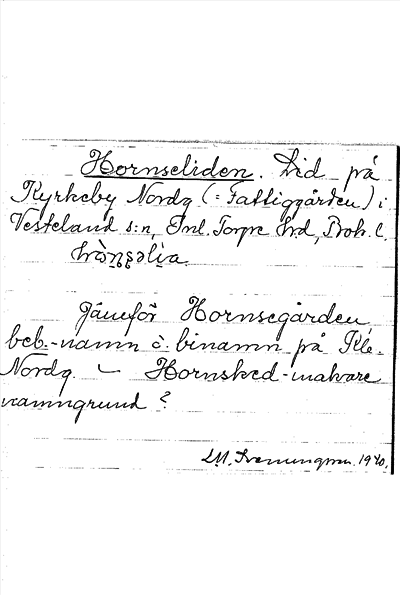 Hornseliden. Lid på
Kyrkeby Nordg (= Fattiggården) i
Vesteland s:n, Inl. Torpe hrd, Boh. l.
Jämför Hornsegården
beb.-namn o. binamn på Kbe.
Nordg. – Hornsked-makare
namngrund?
1940.